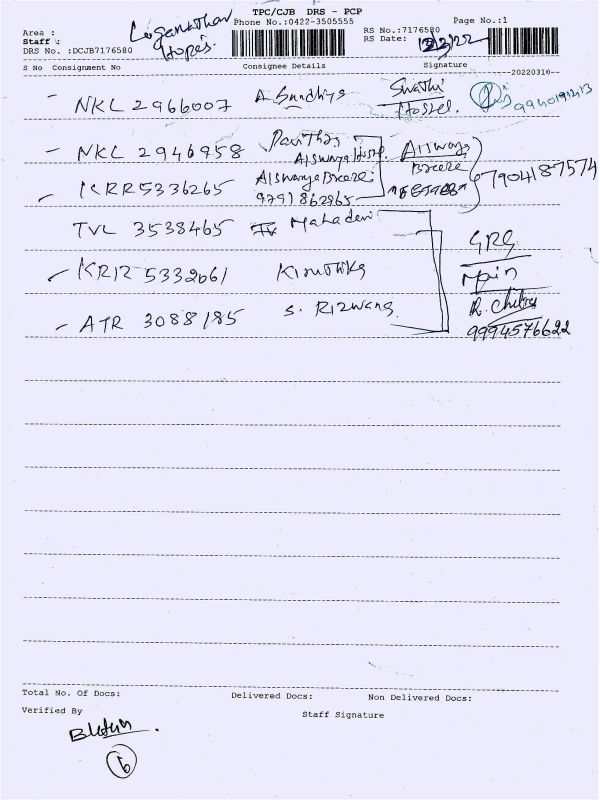 TPC/CJB DRS - PCP
Area : Phone No.:0422-3505555 Page No.:1
Staff : Loganathan RS No.:7176580
Hopes. RS Date:
DRS No. :DCJB7176580
S No Consignment No Consignee Details Signature
--20220310--
NKL 2966007 A. Sandhiya Swathi Hostel. 9940191213
NKL 2946958 Pavithra Aiswarya
Aiswarya Hostel. Breeze
KRR 5336265 Aiswarya Breeze 7904187574
9791862965
TVL 3538465 Mahadevi
GRG
KRR 5332061 Kiruthika Main
R. Chitra
ATR 3088185 S. Rizwana 9994576622
Total No. Of Docs: Delivered Docs: Non Delivered Docs:
Verified By Staff Signature
6